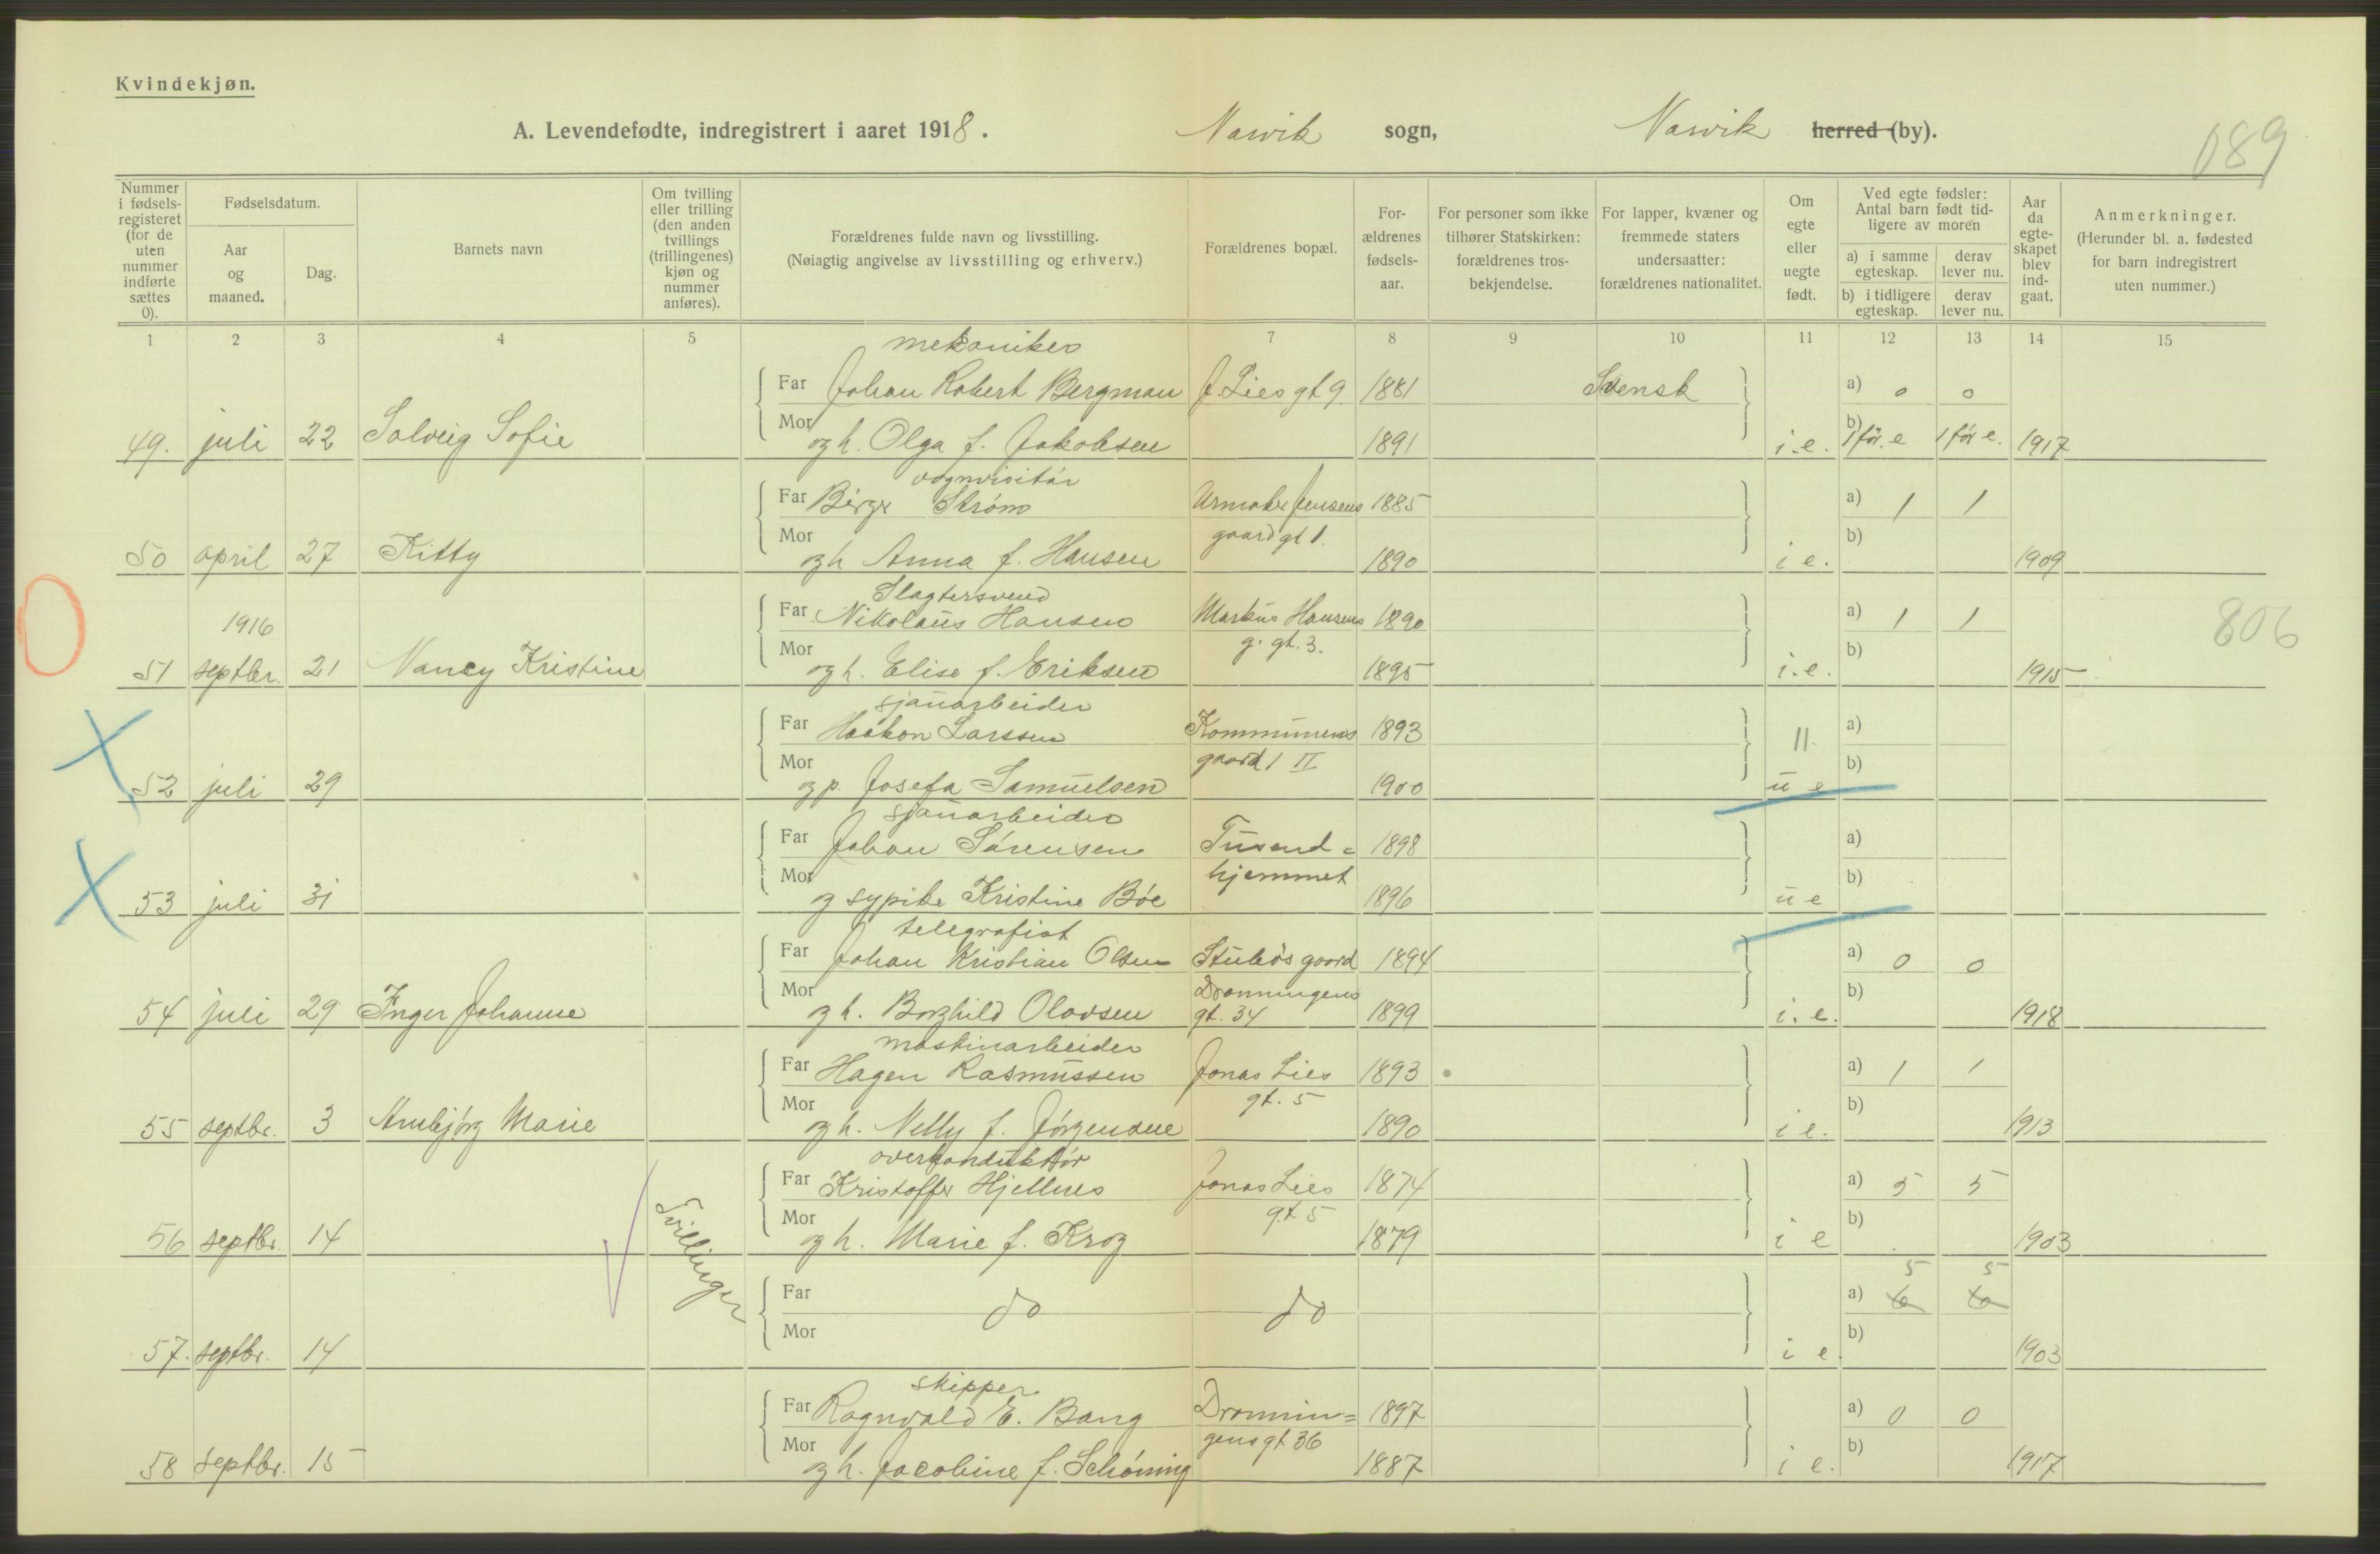 Kvindekjøn.
A. Levendefødte, indregistrert i aaret 1918. Narvik sogn, Narvik herred (by).
089
Nummer i fødsels-registeret (for de uten nummer indførte sættes 0).
Fødselsdatum.
Aar og maaned.
Dag.
Barnets navn
Om tvilling eller trilling (den anden tvillings (trillingenes) kjøn og nummer anføres).
Forældrenes fulde navn og livsstilling.
(Nøiagtig angivelse av livsstilling og erhverv.)
Forældrenes bopæl.
For-ældrenes fødsels-aar.
For personer som ikke tilhører Statskirken: forældrenes tros-bekjendelse.
For lapper, kvæner og fremmede staters undersaatter: forældrenes nationalitet.
Om egte eller uegte født.
Ved egte fødsler: Antal barn født tid-ligere av moren
a) i samme egteskap. derav lever nu.
b) i tidligere egteskap. derav lever nu.
Aar da egte-skapet blev ind-gaat.
Anmerkninger.
(Herunder bl. a. fødested for barn indregistrert uten nummer.)
1 2 3 4 5 7 8 9 10 11 12 13 14 15
mekaniker
Far Johan Robert Bergman J. Lies gt 9 1881 Svensk a) 0 0
49. juli 22 Solveig Sofie Mor og h. Olga f. Jakobsen 1891 i.e. b) 1 før e 1 før e. 1917
vognvisitør
Far Birger Strøm Jensens 1885 a) 1 1
50 april 27 Kitty Mor og h Anna f. Hansen gaard gt 1. 1890 i e. b) 1909
Slagtersvend
1916 Far Nikolaus Hansen Markus Hansens 1890 a) 1 1 806
51 septbr. 21 Nancy Kristine Mor og h. Elise f. Eriksen g. gt. 3. 1895 i.e. b) 1915
sjauarbeider
Far Haakon Larssen Kommunens 1893 11. a)
52 juli 29 Mor og p. Josefa Samuelsen gaard 1 II 1900 u e b)
sjauarbeider
Far Johan Sørensen Tusend= 1898 a)
53 juli 31 Mor og sypike Kristine Bøe hjemmet 1896 u e b)
telegrafist
Far Johan Kristian Olsen Stubøs gaard 1894 a) 0 0
54 juli 29 Inger Johanne Mor og h. Borghild Olavsen Dronningens gt. 34 1899 i.e. b) 1918
maskinarbeider
Far Hagen Rasmussen Jonas Lies 1893 a) 1 1
55 septbr. 3 Arnbjørg Marie Mor og h. Nelly f. Jørgensen gt. 5 1890 i e. b) 1913
overkonduktør
Far Kristoffer Hjellnes Jonas Lies 1874 a) 5 5
56 septbr. 14 Tvillinger Mor og h. Marie f. Krog gt 5 1879 i e b) 1903
5 5
Far do do a) 6 6
57. septbr. 14 Mor i e. b) 1903
skipper
Far Ragnvald E. Bang Dronnin= 1897 a) 0 0
58 septbr. 15 Mor og h. Jacobine f. Schøning gens gt 36 1887 i e. b) 1917